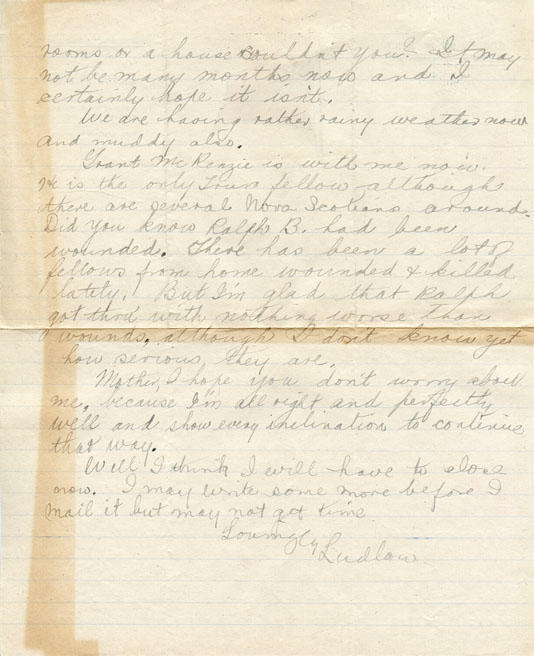 rooms or a house couldn't you? It may
not be many months now and I
certainly hope it isn't.
We are having rather rainy weather now
and muddy also.
Grant McKenzie is with me now.
He is the only Truro fellow although
there are several Nova Scotians around.
Did you know Ralph B. had been
wounded. There has been a lot of
fellows from home wounded & killed
lately. But I'm glad that Ralph
got thro' with nothing worse than
wounds, although I don't know yet
how serious they are.
Mother, I hope you don't worry about
me, because I'm all right and perfectly
well and show every inclination to continue
that way.
Well I think I will have to close
now. I may write some more before I
mail it but may not get time
Lovingly
Ludlow.